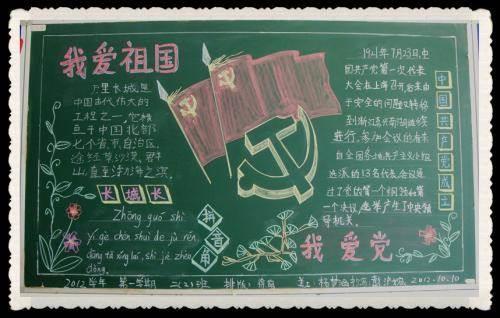 我爱祖国
万里长城是
中国古代伟大的
工程之一,它横
亘于中国北部
七个省、市、自治区,
途经草沙漠、群
山,直至渤海之滨。
长城长
Zhōng guó shí
yí gè chén shuì de jù rén,
dāng tā xǐng lái, shì jiè zhèn
dòng.
拼音角
1921年7月23日,中
国共产党第一次代表
大会在上海召开,后来由
于安全的问题,又转移
到浙江嘉兴南湖继续
进行,参加会议的有来
自全国各地共产主义小组
选派的13名代表,会议通
过了党的第一个纲领和第
一个决议,选举产生了中央领
导机关。
中国共产党成立
我爱党
2012学年 第一学期 二(3)班 排版: 美工: 2012.10.10